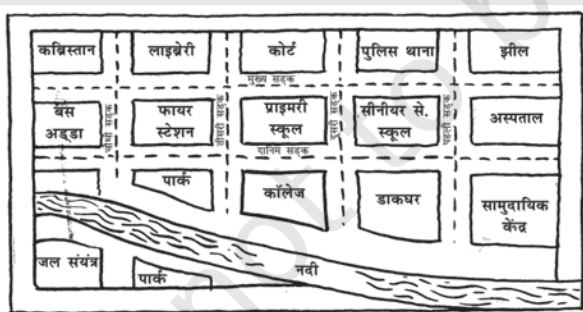 कब्रिस्तान
लाइब्रेरी
कोर्ट
पुलिस थाना
झील
मुख्य सड़क
बस
अड्डा
चौथी सड़क
फायर
स्टेशन
तीसरी सड़क
प्राइमरी
स्कूल
दूसरी सड़क
सीनीयर से.
स्कूल
पहली सड़क
अस्पताल
दानिम सड़क
पार्क
कॉलेज
डाकघर
सामुदायिक
केंद्र
जल संयंत्र
पार्क
नदी
not to be